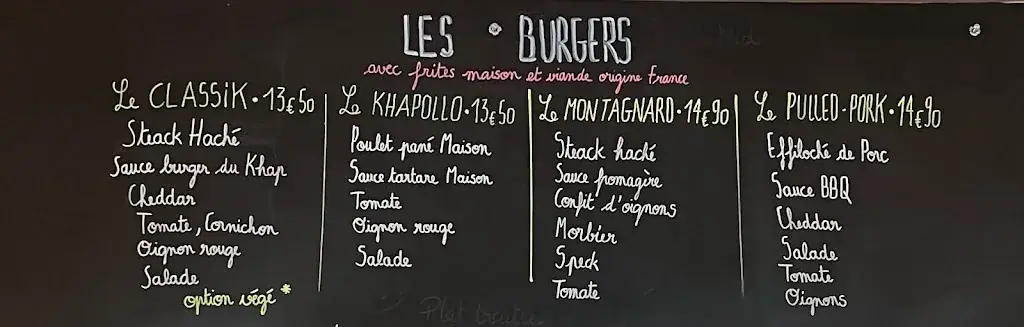 LES BURGERS
avec frites maison et viande origine France
Le CLASSIK • 13€50
Steack Haché
Sauce burger du Khap
Cheddar
Tomate, Cornichon
Oignon rouge
Salade
option végé *
Le KHAPOLLO • 13€50
Poulet pané Maison
Sauce tartare Maison
Tomate
Oignon rouge
Salade
Le MONTAGNARD • 14€90
Steack haché
Sauce fromagère
Confit d'oignons
Morbier
Speck
Tomate
Le PULLED-PORK • 14€90
Effiloché de Porc
Sauce BBQ
Cheddar
Salade
Tomate
Oignons